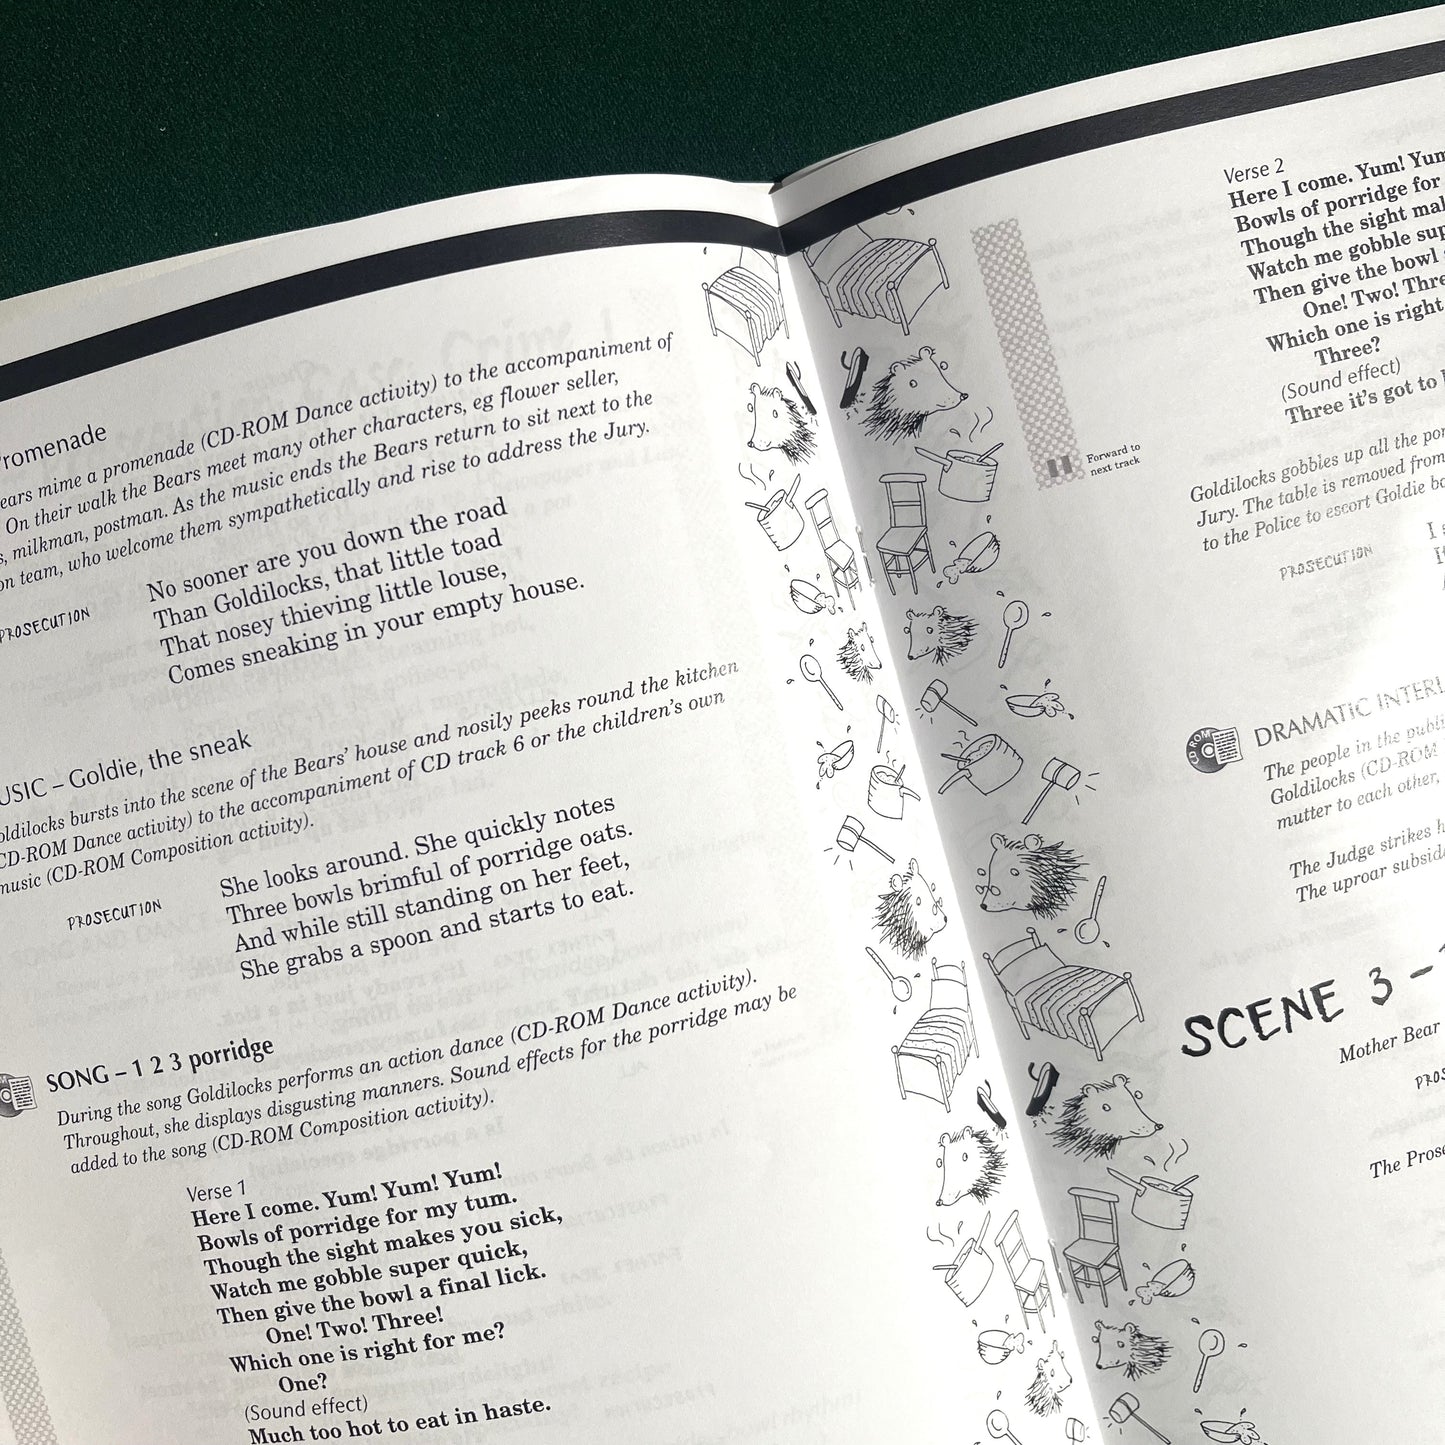 Promenade
ears mime a promenade (CD-ROM Dance activity) to the accompaniment of
On their walk the Bears meet many other characters, eg flower seller,
milkman, postman. As the music ends the Bears return to sit next to the
on team, who welcome them sympathetically and rise to address the Jury.
PROSECUTION
No sooner are you down the road
Than Goldilocks, that little toad
That nosey thieving little louse,
Comes sneaking in your empty house.
USIC – Goldie, the sneak
oldilocks bursts into the scene of the Bears' house and nosily peeks round the kitchen
CD-ROM Dance activity) to the accompaniment of CD track 6 or the children's own
music (CD-ROM Composition activity).
PROSECUTION
She looks around. She quickly notes
Three bowls brimful of porridge oats.
And while still standing on her feet,
She grabs a spoon and starts to eat.
SONG – 1 2 3 porridge
During the song Goldilocks performs an action dance (CD-ROM Dance activity).
Throughout, she displays disgusting manners. Sound effects for the porridge may be
added to the song (CD-ROM Composition activity).
Verse 1
Here I come. Yum! Yum! Yum!
Bowls of porridge for my tum.
Though the sight makes you sick,
Watch me gobble super quick,
Then give the bowl a final lick.
One! Two! Three!
Which one is right for me?
One?
(Sound effect)
Much too hot to eat in haste.
Verse 2
Here I come. Yum! Yum
Bowls of porridge for
Though the sight mak
Watch me gobble sup
Then give the bowl
One! Two! Thre
Which one is right
Three?
(Sound effect)
Three it's got to
Forward to
next track
Goldilocks gobbles up all the por
Jury. The table is removed from
to the Police to escort Goldie ba
PROSECUTION
I
CD ROM
DRAMATIC INTERL
The people in the publi
Goldilocks (CD-ROM
mutter to each other,
The Judge strikes h
The uproar subsid
SCENE 3 –
Mother Bear
PROS
The Prose